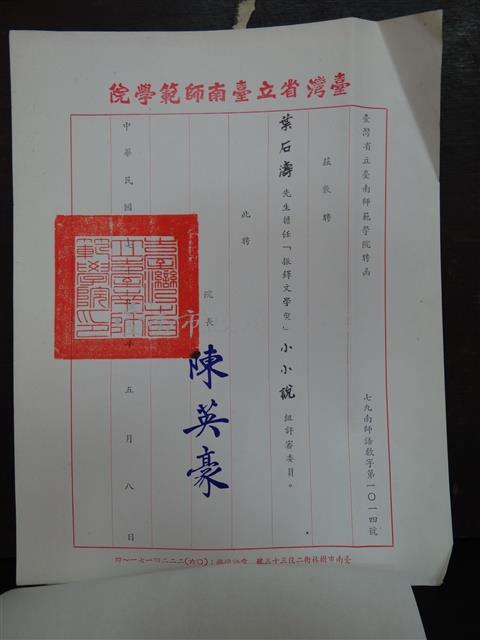 臺灣省立臺南師範學院
臺灣省立臺南師範學院聘函
七九南師語教字第一〇一四號
茲敦聘
葉石濤先生擔任「振鐸文學獎」小小說組評審委員。
此聘
院長
陳英豪
中華民國
年五月八日
臺灣省立臺南師範學院印
市
臺南市樹林街二段三十三號
(〇六)二二二四一七一～四